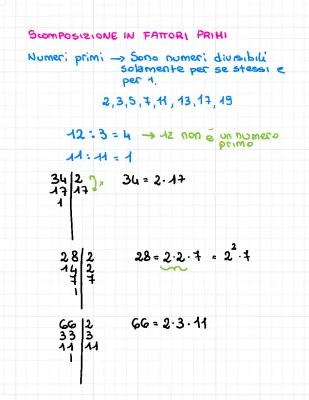 SCOMPOSIZIONE IN FATTORI PRIMI
Numeri primi → Sono numeri divisibili
solamente per se stessi e
per 1.
2,3,5,7,11, 13,17, 19
12 : 3 = 4 → 12 non è un numero
primo
11 : 11 = 1
34 | 2 x 34 = 2·17
17 | 17
1
28 | 2 28 = 2·2·7 = 2²·7
14 | 2
7 | 7
1
66 | 2 66 = 2·3·11
33 | 3
11 | 11
1